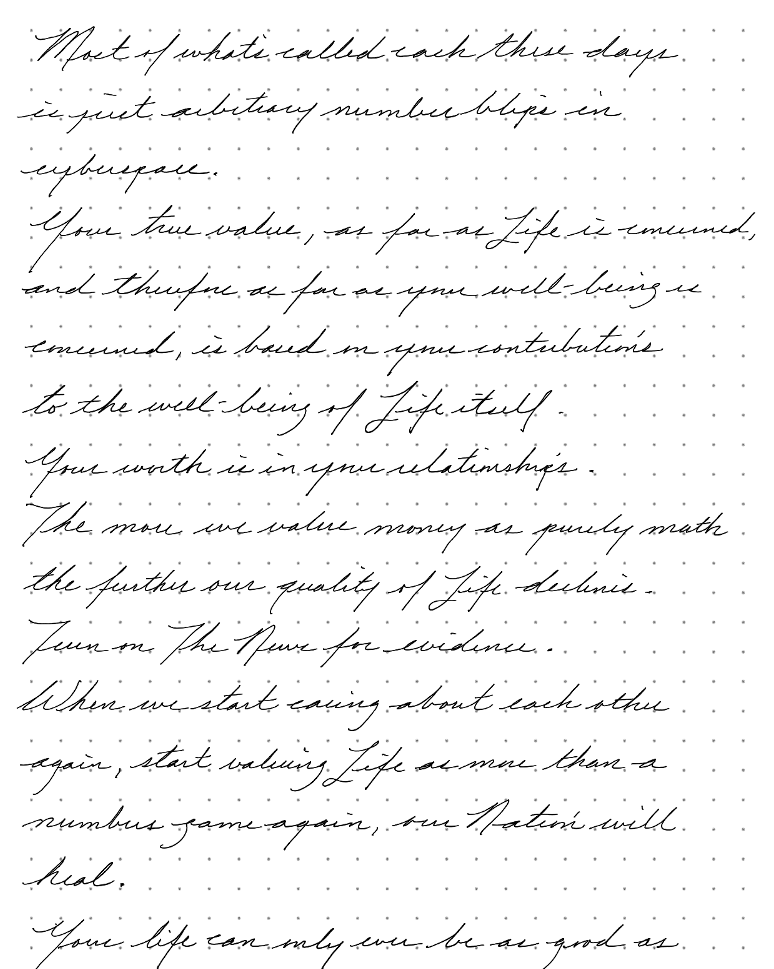 Most of what's called cash these days
is just arbitrary number blips in
cyberspace.
Your true value, as far as Life is concerned,
and therefore as far as your well-being is
concerned, is based on your contributions
to the well-being of Life itself.
Your worth is in your relationships.
The more we value money as purely math
the further our quality of Life declines.
Turn on The News for evidence.
When we start caring about each other
again, start valuing Life as more than a
numbers game again, our Nation will
heal.
Your life can only ever be as good as